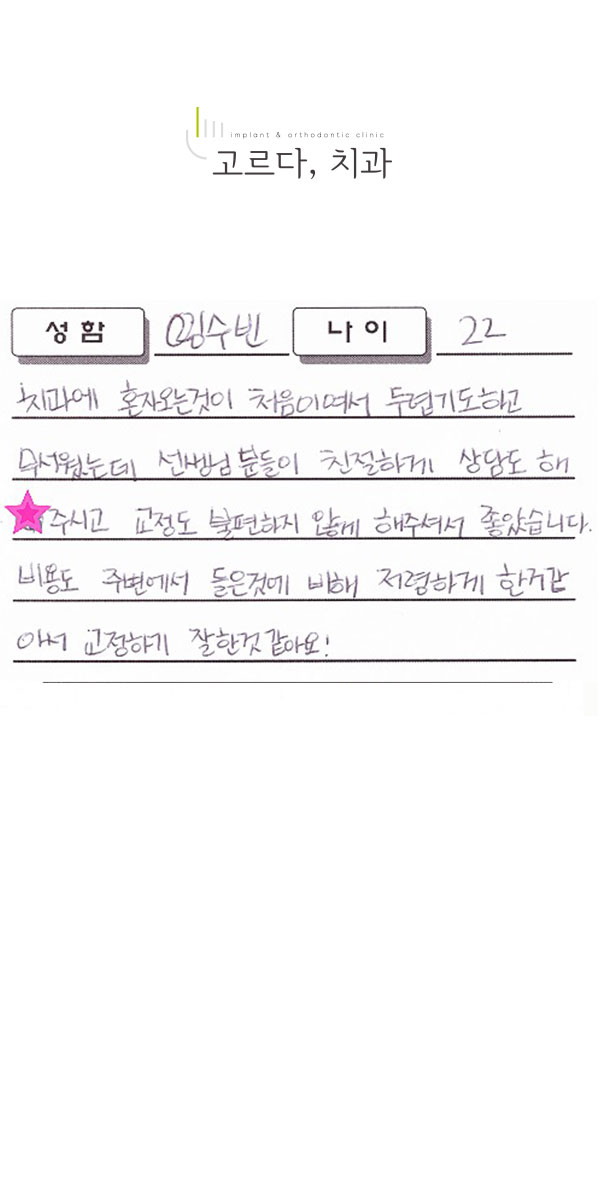 implant & orthodontic clinic
고르다, 치과
성함 나이 22
치과에 혼자오는것이 처음이여서 두렵기도하고
무서웠는데 선생님분들이 친절하게 상담도 해
주시고 교정도 불편하지 않게 해주셔서 좋았습니다.
비용도 주변에서 들은것에 비해 저렴하게 한거같
아서 교정하기 잘한것 같아요!